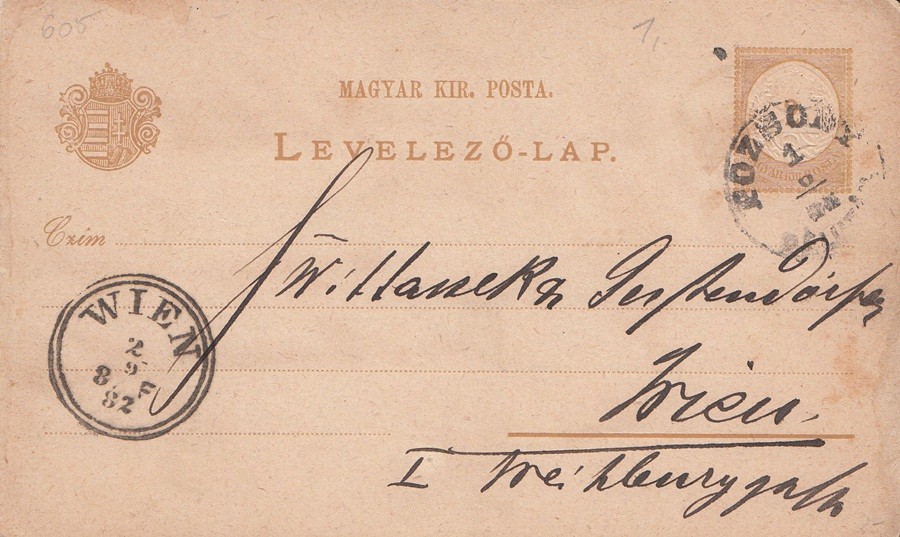 605
1,
MAGYAR KIR. POSTA.
LEVELEZŐ-LAP.
POZSONY
1
9/
Czím
Wittassek &
Wien
I Weihburggasse
WIEN
2
9
8.F
82